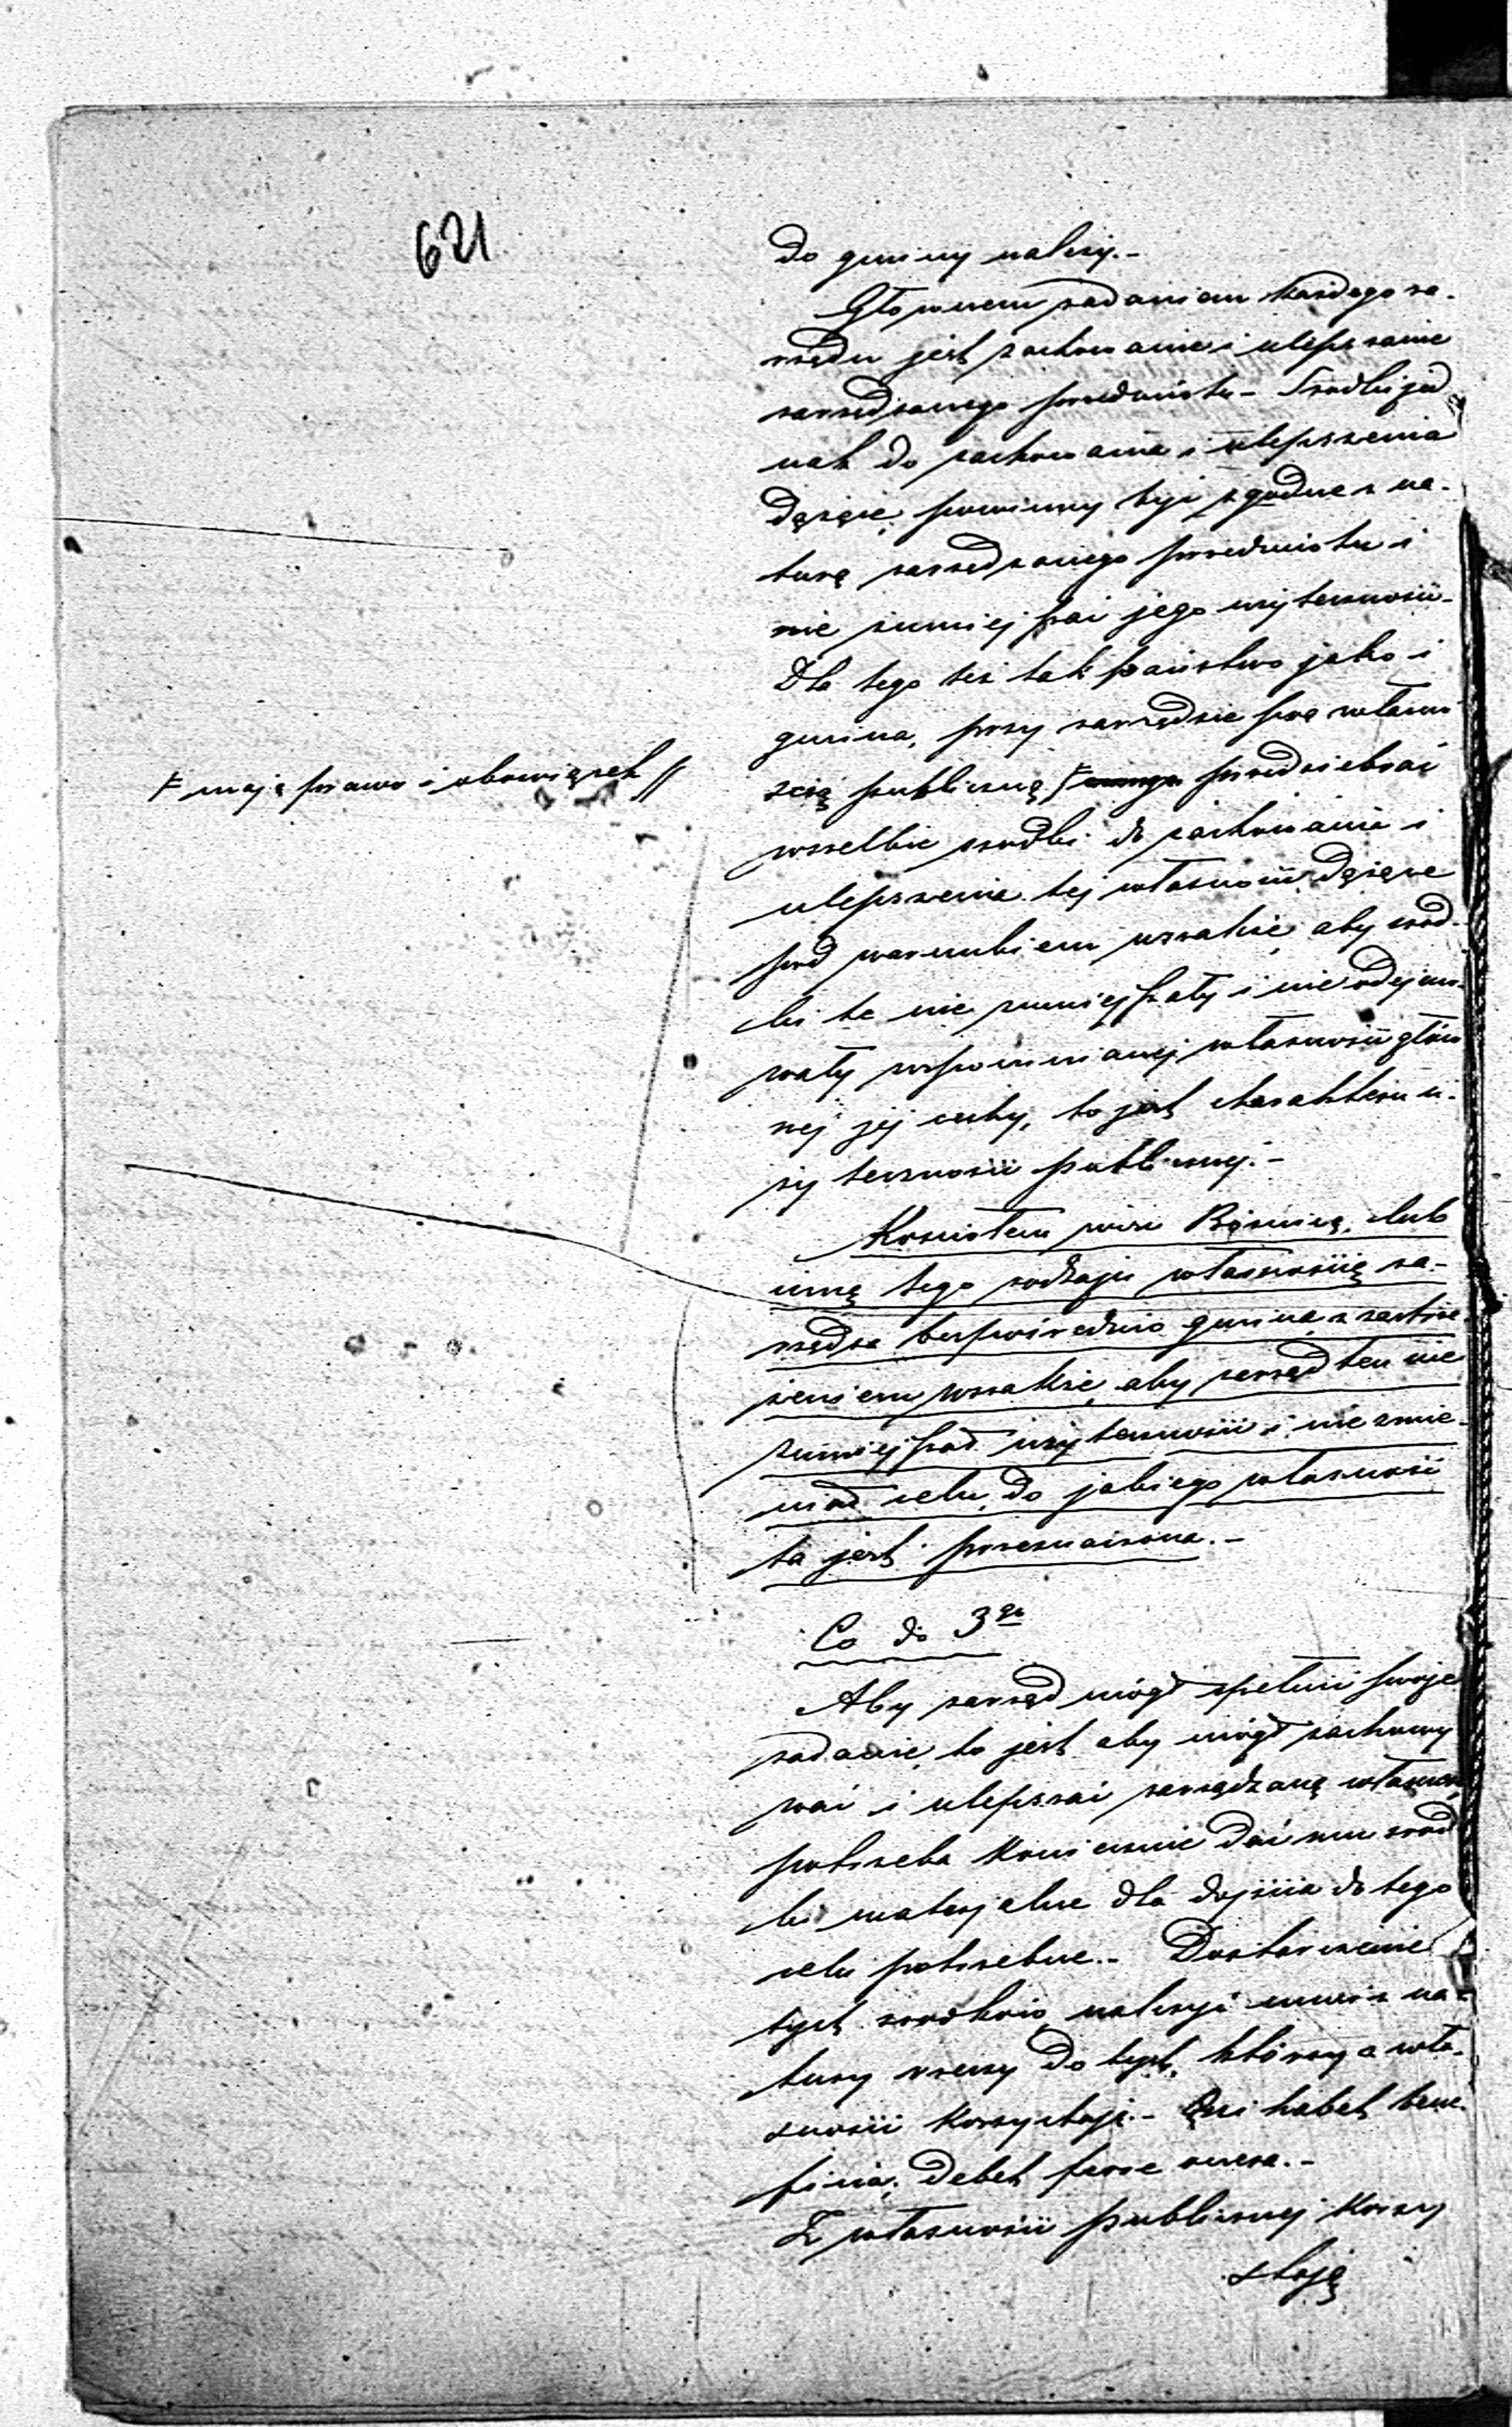 621
do gminy należy.-
Głównem zadaniem każdego za-
rządu jest zachowanie i ulepszanie
zarządzanego przedmiotu - Srodki jed
nak do zachowania i ulepszenia
dążące, powinny być zgodne z na-
turą zarządzanego przedmiotu i
nie zmniejszać jego użyteczności -
Dla tego też tak państwo jako i
gmina, przy zarządzie swą własno
scią publiczną ⊧ przedsiebrać
⊧ mają prawo i obowiązek //
wszelkie srodki do zachowania i
ulepszenia tej własności dążące
pod warunkiem wszakże, aby srod-
ki te nie zmniejszały i nie odejmo-
wały wspomnianej własności głów
nej jej cechy, to jest charakteru u-
żyteczności publicznej.-
Kosciołem więc Bóżnicą, lub
inną tego rodzaju własnością za-
rządza bezpośrednio gmina z zastrze
żeniem wszakże, aby zarząd ten nie
zmniejszał użyteczności i nie zmie-
niał celu, do jakiego własność
ta jest przeznaczona.-
Co do 3go
Aby zarząd mógł spełnić swoje
zadanie, to jest aby mógł zachowy
wać i ulepszać zarządzaną własność
potrzeba koniecznie dać mu srod
ki materjalne dla dojścia do tego
celu potrzebne.- Dostarczenie
tych srodków należy mniż na-
tury rzeczy do tych, którzy z wła-
sności korzystają.- Qui habet bene-
ficia, debet ferre onera.-
Z własności publicznej korzy
stają